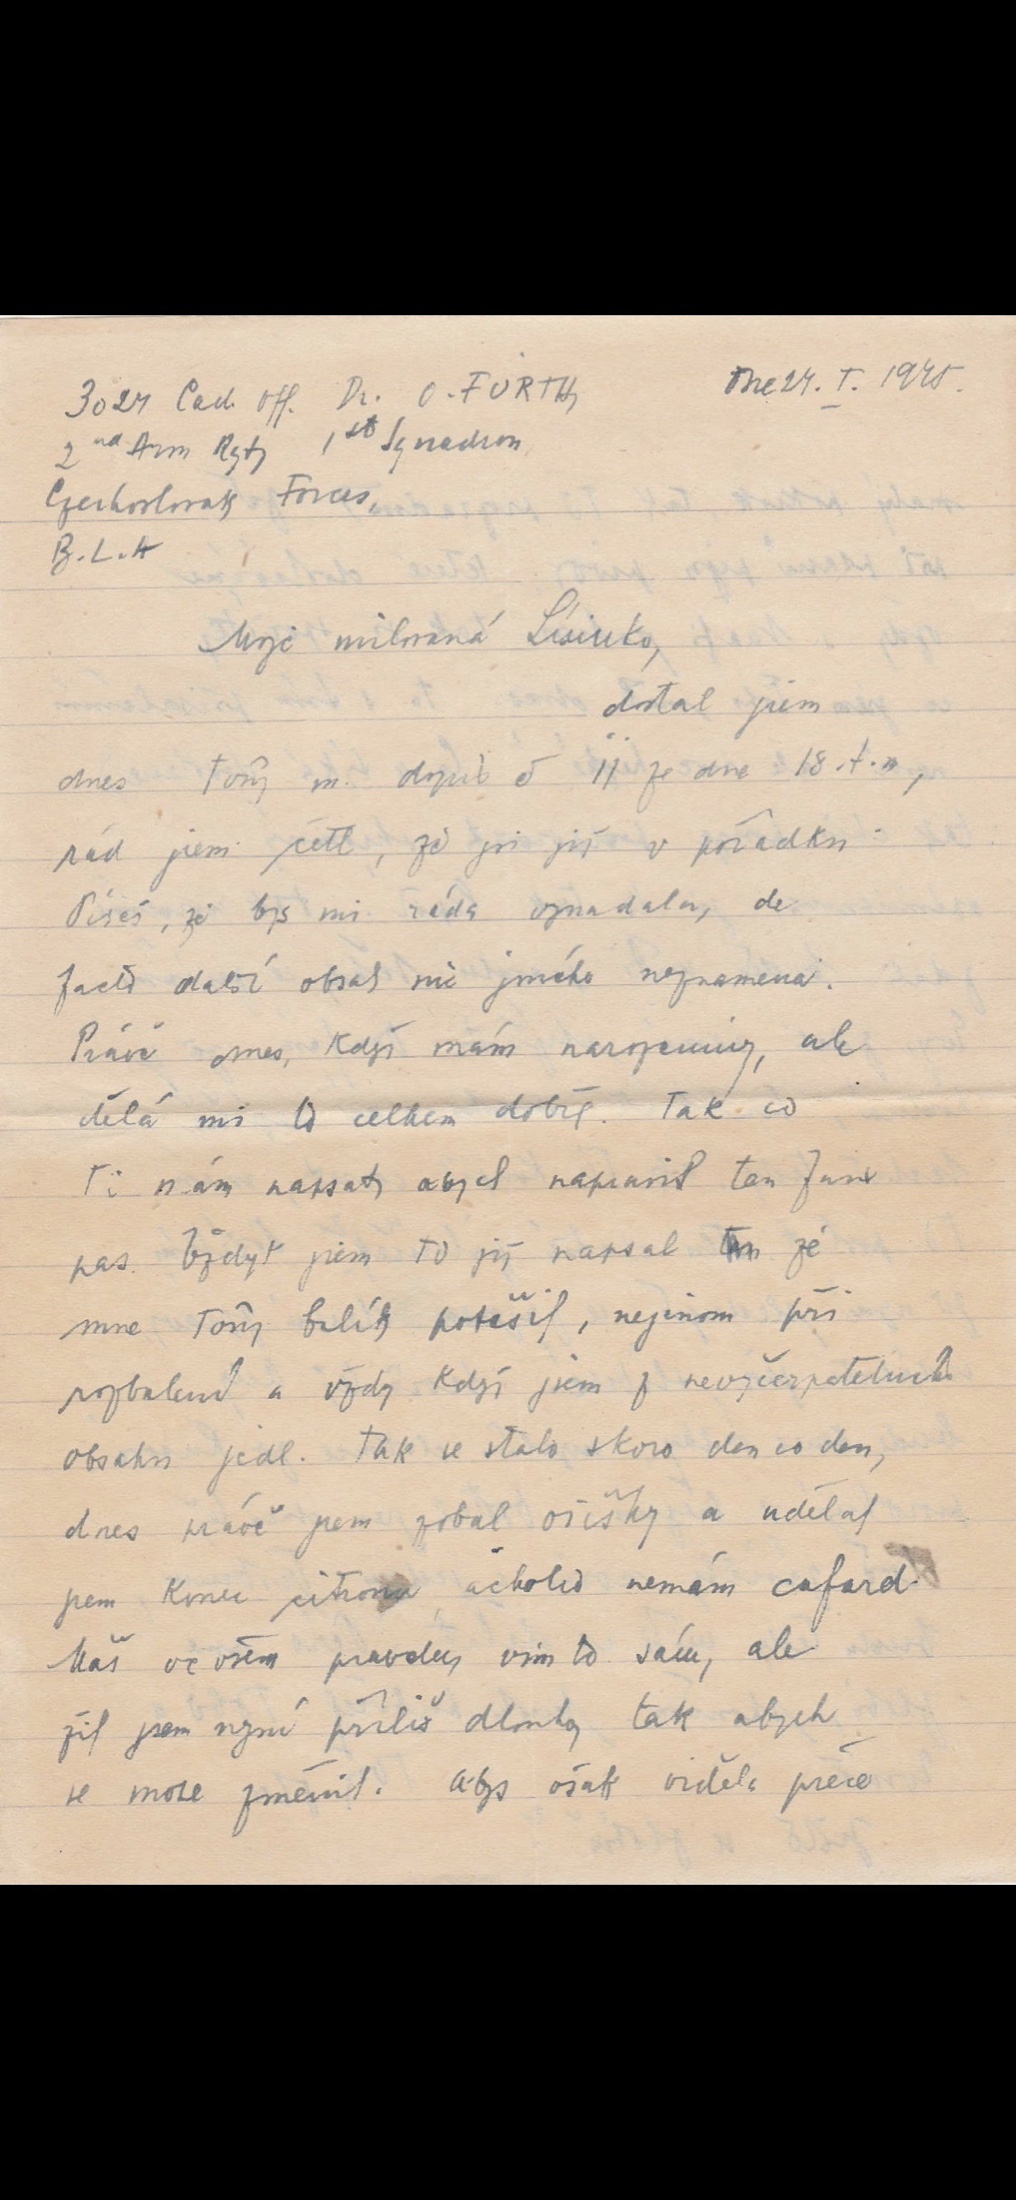 3024 Cad. Off. Dr. O. FÜRTH,
Dne 24. I. 1945.
2nd Arm Rgt, 1st Squadron,
Czechoslovak Forces,
B.L.A
Moje milovaná Lisinko,
dostal jsem
dnes Tvůj m. dopis č 11 ze dne 18.t.m,
rád jsem četl, že jsi již v pořádku.
Píšeš, že bys mi ráda vynadala, de
facto další obsah nic jiného neznamená.
Právě dnes, když mám narozeniny, ale
dělá mi to celkem dobře. Tak co
Ti mám napsat, abych napravil ten
pas. Vždyť jsem to již napsal že
mne Tvůj balík potěšil, nejenom při
rozbalení a vždy když jsem z nevyčerpatelného
obsahu jedl. Tak se stalo skoro den co den,
dnes právě jsem zobal oříšky a udělal
jsem konec citronu, ačkoliv nemám cafard.
Máš ve všem pravdu, vím to sám, ale
žil jsem nyní příliš dlouho tak abych
se mohl změnit. Abys však viděla přece